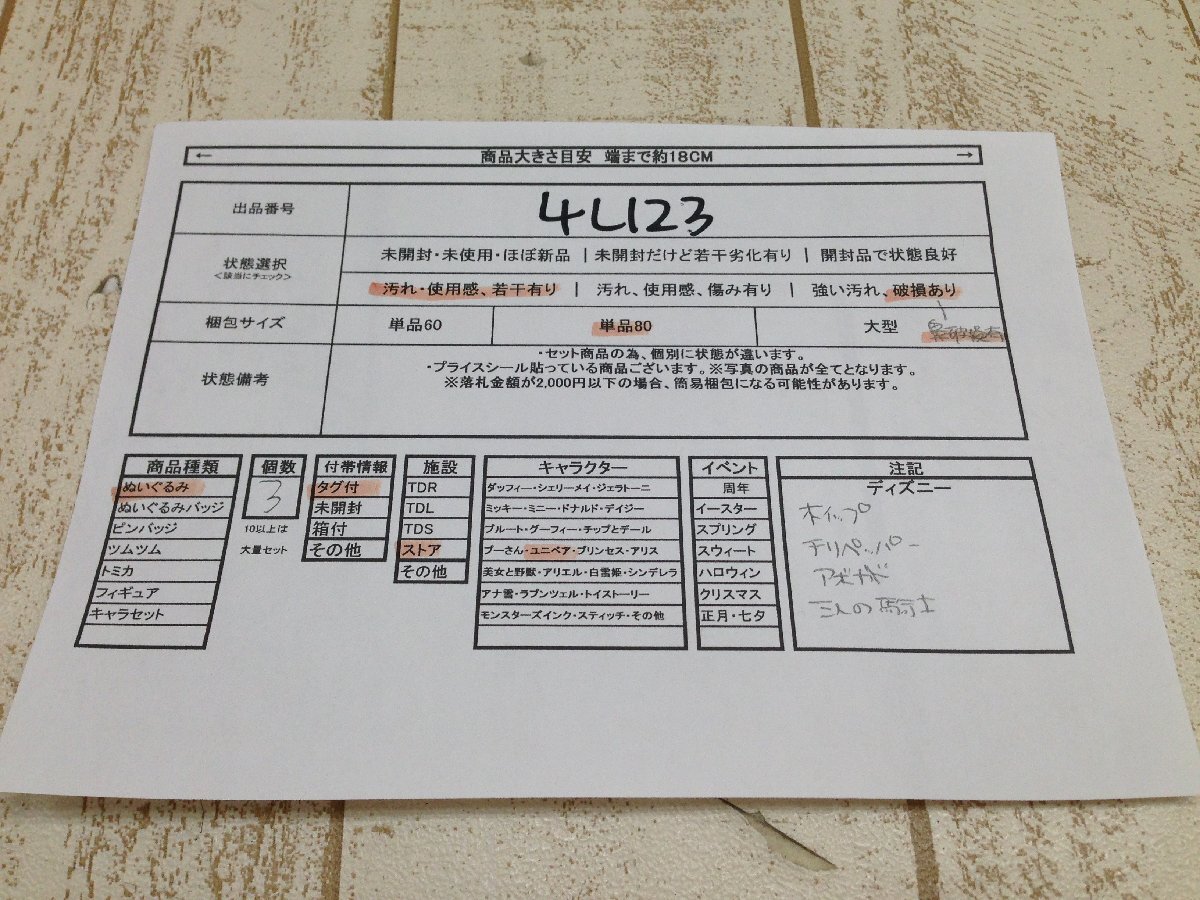 ← 商品大きさ目安 端まで約18CM →
出品番号 4L123
状態選択
<該当にチェック>
未開封・未使用・ほぼ新品 | 未開封だけど若干劣化有り | 開封品で状態良好
汚れ・使用感、若干有り | 汚れ、使用感、傷み有り | 強い汚れ、破損あり
梱包サイズ 単品60 単品80 大型
状態備考
・セット商品の為、個別に状態が違います。
・プライスシール貼っている商品ございます。※写真の商品が全てとなります。
※落札金額が2,000円以下の場合、簡易梱包になる可能性があります。
商品種類
ぬいぐるみ
ぬいぐるみバッジ
ピンバッジ
ツムツム
トミカ
フィギュア
キャラセット
個数
3
10以上は
大量セット
付帯情報
タグ付
未開封
箱付
その他
施設
TDR
TDL
TDS
ストア
その他
キャラクター
ダッフィー・シェリーメイ・ジェラトーニ
ミッキー・ミニー・ドナルド・デイジー
プルート・グーフィー・チップとデール
プーさん・ユニベア・プリンセス・アリス
美女と野獣・アリエル・白雪姫・シンデレラ
アナ雪・ラプンツェル・トイストーリー
モンスターズインク・スティッチ・その他
イベント
周年
イースター
スプリング
スウィート
ハロウィン
クリスマス
正月・七夕
注記
ディズニー
ホイップ
チリペッパー
アボカド
三人の騎士